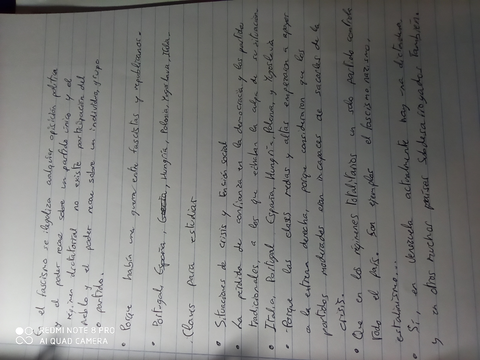 el fascismo se ilegaliza cualquier oposición política
el poder recae sobre un partido único y el
régimen dictatorial no existe participación del
pueblo y el poder recae sobre un individuo, grupo
partido.
• Porque había una guerra entre fascistas y republicanos.
• Portugal, España, Hungría, Polonia, Yugoslavia, Italia.
Claves para estudiar
• Situaciones de crisis y tensión social
• La pérdida de confianza en la democracia y los partidos
tradicionales, a los que echaban la culpa de su situación
• Italia, Portugal, España, Hungría, Polonia, y Yugoslavia
• Porque las clases medias y altas empezaron a apoyar
a la extrema derecha, porque consideraron que los
partidos moderados eran incapaces de sacarles de la
crisis.
• Que en los regímenes totalitarios un solo partido controla
todo el país. Son ejemplos el fascismo, nazismo,
estalinismo...
• Sí, en Venezuela actualmente hay una dictadura
y en otros muchos países también.
REDMI NOTE 8 PRO
AI QUAD CAMERA